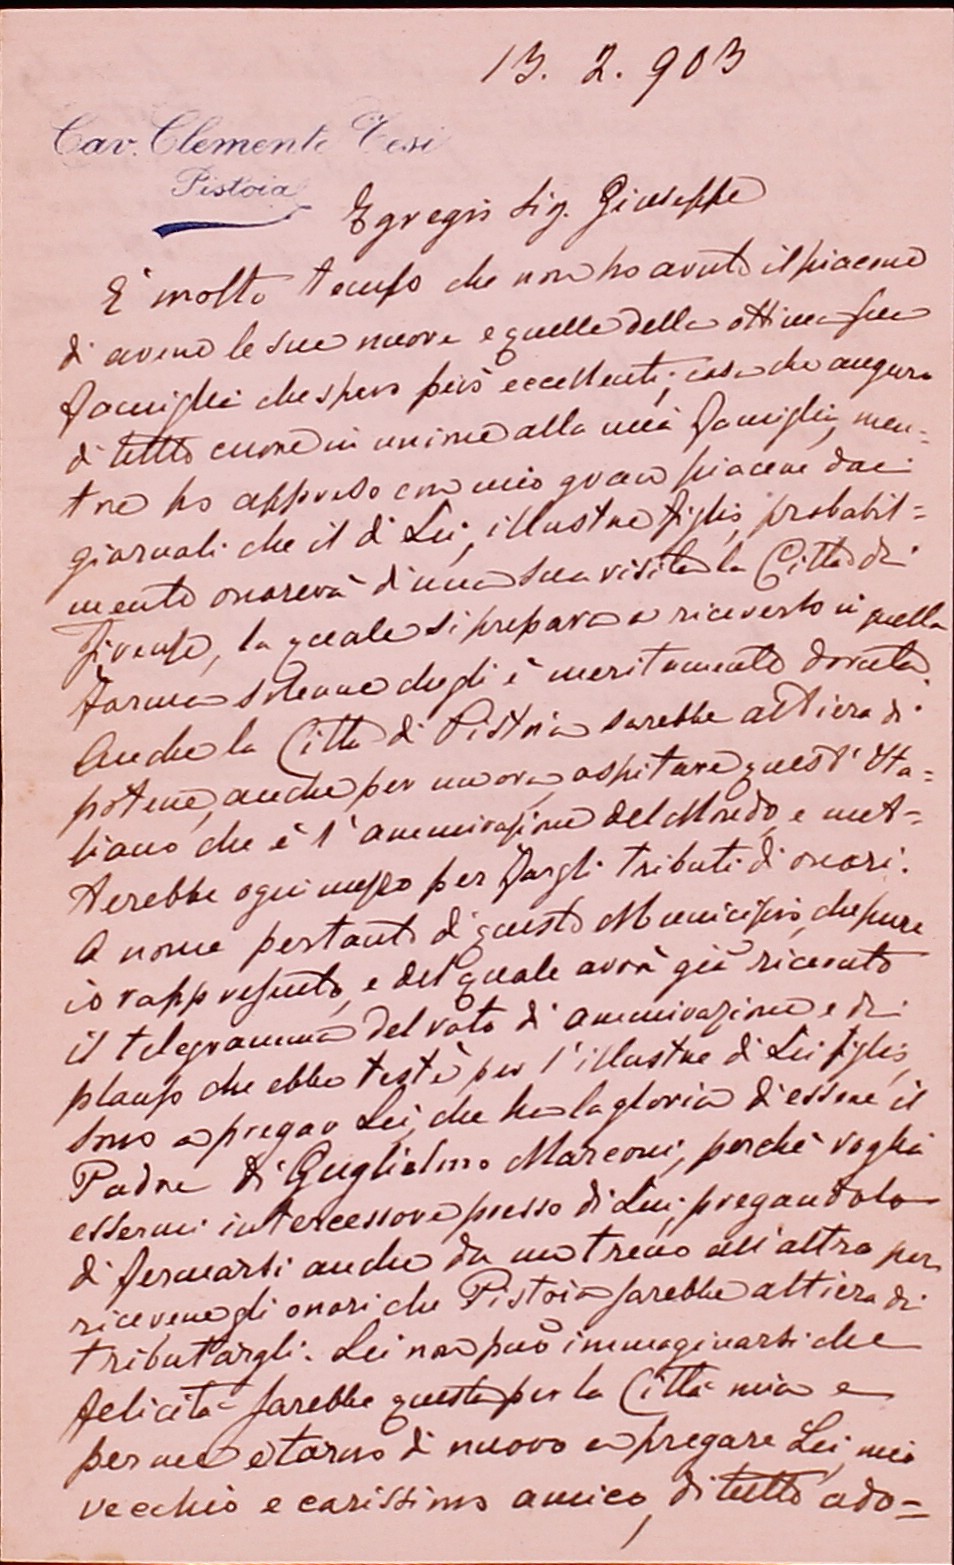 13. 2. 903
Cav. Clemente Tesi
Pistoia
Egregio Sig. Giuseppe
È molto tempo che non ho avuto il piacere
di avere le sue nuove e quelle della ottima sua
famiglia che spero però eccellenti, cosa che auguro
di tutto cuore in unione alla mia famiglia, men=
tre ho appreso con mio gran piacere dai
giornali che il di Lei, illustre figlio, probabil=
mente onorerà d'una sua visita la Città di
Firenze, la quale si prepara a riceverlo in quella
forma solenne che gli è meritamente dovuta.
Anche la Città di Pistoia sarebbe altiera di
potere, anche per un ora, ospitare quest'Ita=
liano che è l'ammirazione del Mondo, e met=
terebbe ogni mezzo per fargli tributi di onori.
A nome pertanto di questo Municipio, che pure
io rappresento, e del quale avrà già ricevuto
il telegramma del voto di ammirazione e di
plauso che ebbe testè per l'illustre di Lei figlio,
sono a pregar Lei, che ha la gloria d'essere il
Padre di Guglielmo Marconi, perchè voglia
essermi intercessore presso di Lui, pregandolo
di fermarsi anche da un treno all'altro per
ricevere gli onori che Pistoia sarebbe altiera di
tributargli. Lei non può immaginarsi che
felicità sarebbe questa per la Città mia e
per me e torno di nuovo a pregare Lei, mio
vecchio e carissimo amico, di tutto ado=